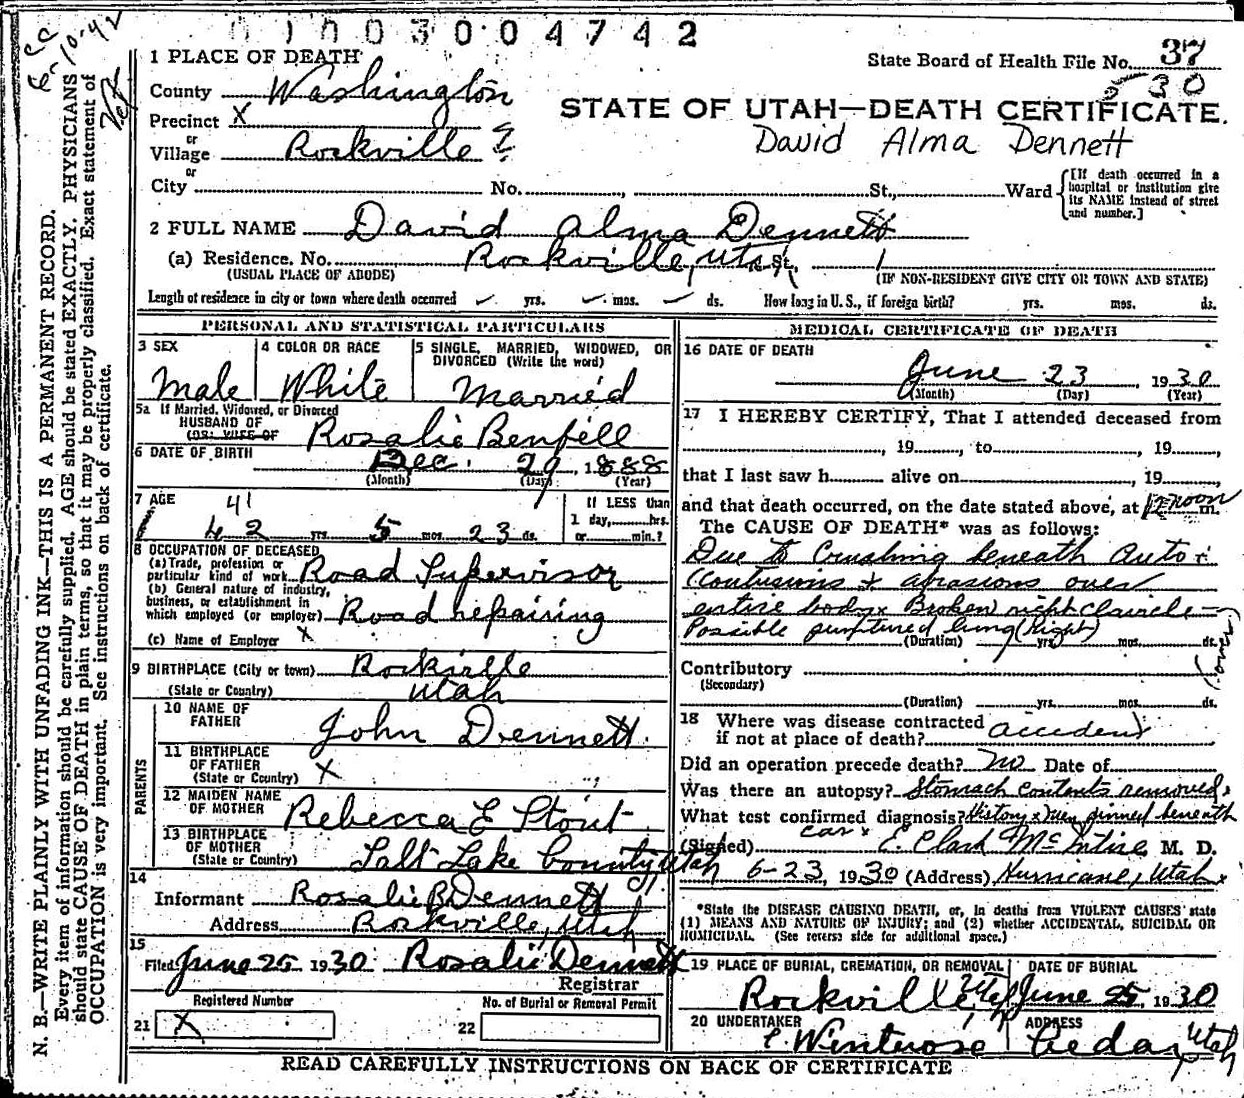 0 1 0 0 3 0 0 4 7 4 2
1 PLACE OF DEATH
State Board of Health File No. 37
530
County Washington
STATE OF UTAH—DEATH CERTIFICATE.
Precinct X
David Alma Dennett
or
Village Rockville
or
City No. , St., Ward
[If death occurred in a hospital or institution give its NAME instead of street and number.]
2 FULL NAME David Alma Dennett
(a) Residence. No. Rockville, Utah St.,
(USUAL PLACE OF ABODE) (IF NON-RESIDENT GIVE CITY OR TOWN AND STATE)
Length of residence in city or town where death occurred yrs. mos. ds. How long in U.S., if foreign birth? yrs. mos. ds.
PERSONAL AND STATISTICAL PARTICULARS
3 SEX
Male
4 COLOR OR RACE
White
5 SINGLE, MARRIED, WIDOWED, OR
DIVORCED (Write the word)
Married
5a If Married, Widowed, or Divorced
HUSBAND OF
(OR) WIFE OF Rosalie Benfell
6 DATE OF BIRTH Dec. 29, 1888
(Month) (Day) (Year)
7 AGE 41
42 yrs. 5 mos. 23 ds.
If LESS than
1 day, hrs.
or min.?
8 OCCUPATION OF DECEASED
(a) Trade, profession or
particular kind of work Road Supervisor
(b) General nature of industry,
business, or establishment in
which employed (or employer) Road repairing
(c) Name of Employer x
9 BIRTHPLACE (City or town) Rockville
(State or Country) Utah
PARENTS
10 NAME OF
FATHER John Dennett
11 BIRTHPLACE
OF FATHER
(State or Country) X
12 MAIDEN NAME
OF MOTHER Rebecca E Stout
13 BIRTHPLACE
OF MOTHER
(State or Country) Salt Lake County Utah
14
Informant Rosalie B Dennett
Address Rockville, Utah
15
Filed June 25 1930 Rosalie Dennett
Registrar
Registered Number
21 X
No. of Burial or Removal Permit
22
MEDICAL CERTIFICATE OF DEATH
16 DATE OF DEATH
June 23, 1930
(Month) (Day) (Year)
17 I HEREBY CERTIFY, That I attended deceased from
, 19 , to , 19 ,
that I last saw h alive on , 19
and that death occurred, on the date stated above, at 12 noon m.
The CAUSE OF DEATH* was as follows:
Due to Crushing beneath auto
Contusions & abrasions over
entire body x Broken right clavicle
Possible punctured lung (Right)
(Duration) yrs. mos. ds.
Contributory
(Secondary)
(Duration) yrs. mos. ds.
18 Where was disease contracted
if not at place of death? accident
Did an operation precede death? No Date of
Was there an autopsy? Stomach contents removed
What test confirmed diagnosis? History x Men pinned beneath
car x
(Signed) E. Clark McIntire, M. D.
6-23, 1930 (Address) Hurricane, Utah
*State the DISEASE CAUSING DEATH, or, in deaths from VIOLENT CAUSES state
(1) MEANS AND NATURE OF INJURY; and (2) whether ACCIDENTAL, SUICIDAL OR
HOMICIDAL. (See reverse side for additional space.)
19 PLACE OF BURIAL, CREMATION, OR REMOVAL
Rockville Utah
DATE OF BURIAL
June 25, 1930
20 UNDERTAKER
Winterose
ADDRESS
Cedar, Utah
READ CAREFULLY INSTRUCTIONS ON BACK OF CERTIFICATE
N. B.—WRITE PLAINLY WITH UNFADING INK—THIS IS A PERMANENT RECORD.
Every item of information should be carefully supplied. AGE should be stated EXACTLY. PHYSICIANS
should state CAUSE OF DEATH in plain terms, so that it may be properly classified. Exact statement of
OCCUPATION is very important. See instructions on back of certificate.